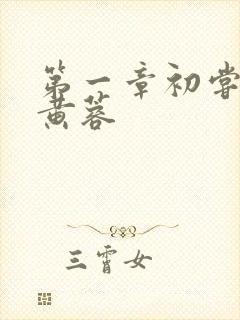 第一章初尝
黄蓉
三霄女